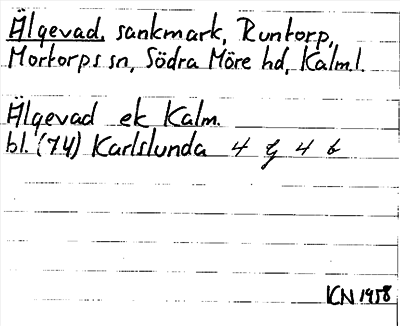 Älgevad, sankmark, Runtorp,
Mortorps sn, Södra Möre hd, Kalm.l.
Älgevad ek Kalm.
bl. (74) Karlslunda 4 G 4 b
KN 1958